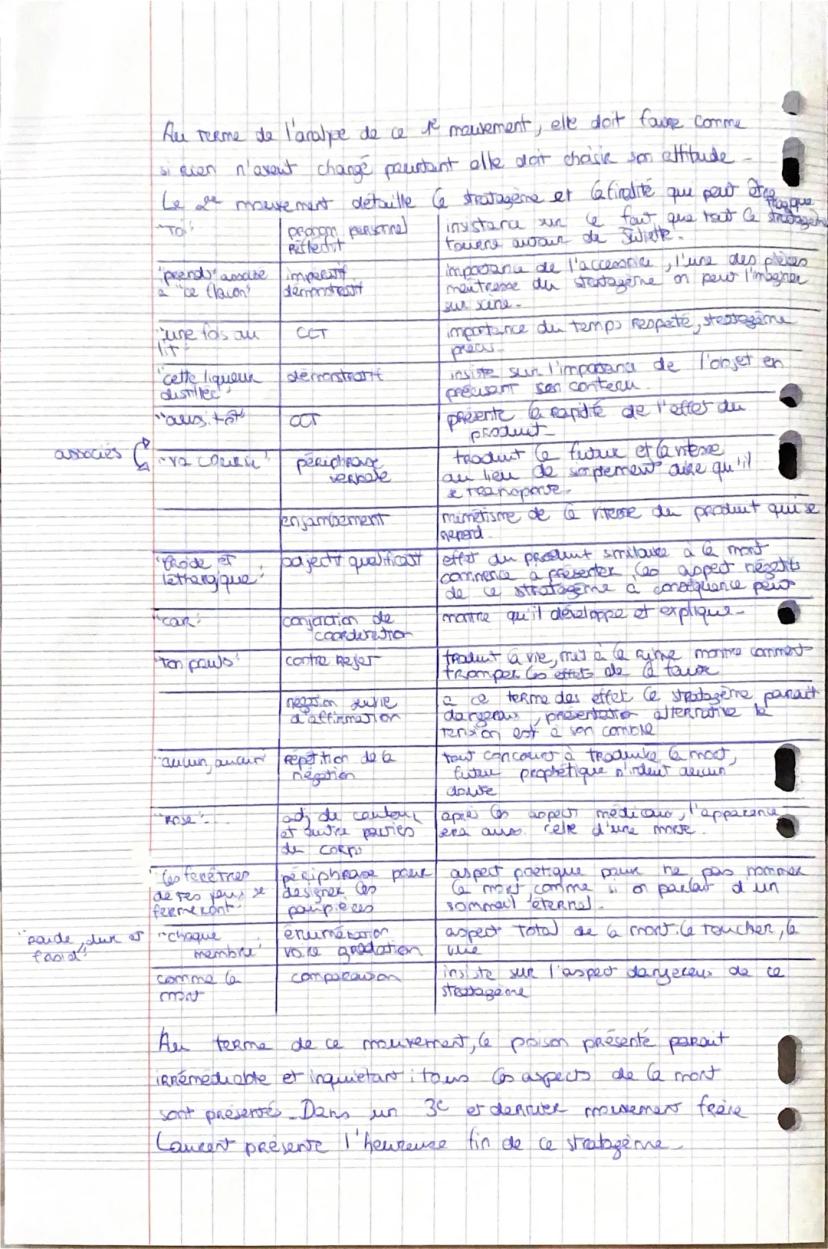 Au terme de l'analyse de ce 1e mouvement, elle doit faire comme
si rien n'avait changé pourtant elle doit choisir son attitude.
Le 2e mouvement détaille le stratagème et la finalité que peut être
tragique
"Toi" pronom personnel réfléchi insistance sur le fait que tout ce stratagème
tourne autour de Juliette.
"prends" associé à "ce flacon" impératif démonstratif importance de l'accessoire, l'une des pièces
maitresse du stratagème on peut l'imaginer
sur scène.
"une fois au lit" CCT importance du temps respecté, stratagème
précis.
"cette liqueur distillée" démonstratif insiste sur l'importance de l'objet en
précisant son contenu.
"aussitôt" CCT présente la rapidité de l'effet du
produit.
associés
"va courir" périphrase verbale traduit le futur et la vitesse
au lieu de simplement dire qu'il
se transporte.
enjambement mimétisme de la vitesse du produit qui se
répend.
"froide et léthargique" adjectif qualificatif effet du produit similaire à la mort
commence à présenter les aspect négatifs
de ce stratagème à conséquence peur
"car" conjonction de coordination montre qu'il développe et explique.
"ton pouls" contre rejet traduit la vie, mis à la rime montre comment
tromper les effets de la
négation suivie d'affirmation a ce terme des effet le stratagème parait
dangereux, présentation alternative la
tension est à son comble
"aucun, aucun" répétition de la négation tout concourt à traduire la mort,
futur prophétique n'induit aucun
doute
"rose"... adj de couleur et autre parties du corps après les aspect médicaux, l'apparence
sera aussi celle d'une morte.
"les fenêtres de tes yeux se fermeront" périphrase pour désigner les paupières aspect poétique pour ne pas nommer
la mort comme si on parlait d'un
sommeil éternel.
"raide, dur et froid"
"chaque membre" énumération voire gradation aspect total de la mort. le toucher, la
vue
comme la mort comparaison insiste sur l'aspect dangereux de ce
stratagème
Au terme de ce mouvement, le poison présenté parait
irrémédiable et inquiétant : tous les aspects de la mort
sont présentés. Dans un 3e et dernier mouvement frère
Laurent présente l'heureuse fin de ce stratagème.